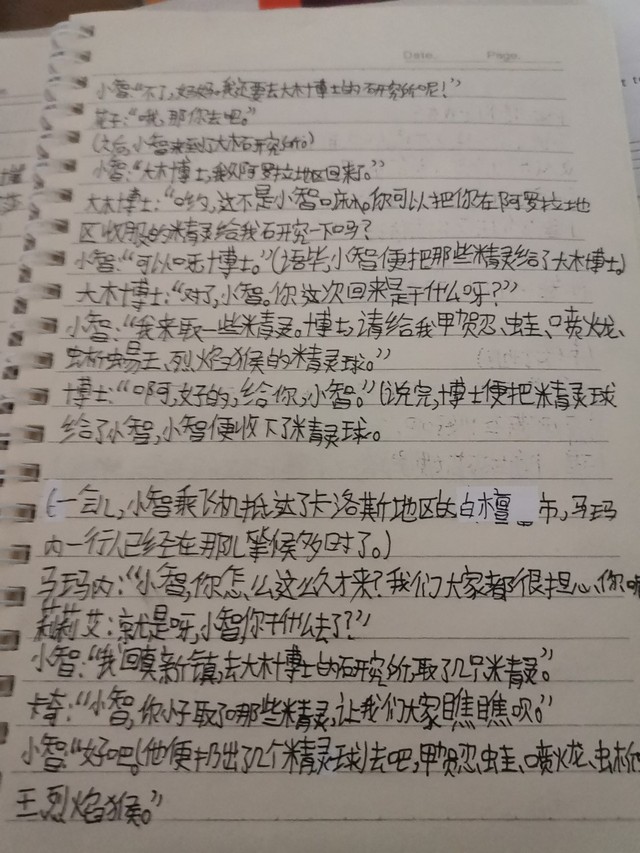 Date. Page.
小智:“不了,好好,我还要去大木博士的研究所呢!”
花子:“哦,那你去吧。”
(之后,小智来到了大木研究所。)
小智:“大木博士,我从阿罗拉地区回来了。”
大木博士:“哟,这不是小智嘛,你可以把你在阿罗拉地
区收服的精灵给我研究一下吗?
小智:“可以呀博士。”(语毕,小智便把那些精灵给了大木博士)
大木博士:“对了,小智。你这次回来是干什么呀?”
小智:“我来取一些精灵。博士,请给我甲贺忍蛙、喷火龙、
蜥蜴王、烈焰猴的精灵球。”
博士:“啊,好的,给你,小智。”(说完,博士便把精灵球
给了小智,小智便收下了精灵球。
(一会儿,小智乘飞机抵达了卡洛斯地区的白檀市,马玛
内一行人已经在那儿等候多时了。)
马玛内:“小智,你怎么这么久才来?我们大家都很担心你
莉莉艾:就是呀,小智你干什么去了?”
小智:“我回真新镇,去大木博士的研究所,取了几只精灵。”
卡奇:“小智,你小子取了哪些精灵,让我们大家瞧瞧呗。”
小智:“好吧。(他便扔出了几个精灵球)去吧,甲贺忍蛙、喷火龙、
王、烈焰猴。”